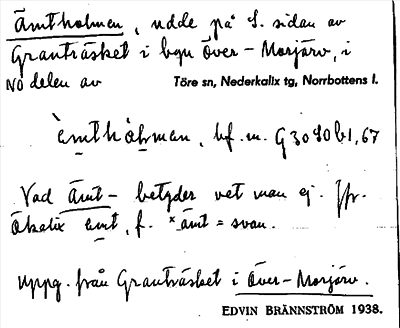 Ämtholmen, udde på S. sidan av
Granträsket i byn Över-Morjärv, i
NÖ delen av Töre sn, Nederkalix tg, Norrbottens l.
bf. m. G3090b1,67
Vad Ämt- betyder vet man ej. Jfr.
Ökalix ämt, f. *ämt = svan.
Uppg. från Granträsket i Över-Morjärv.
EDVIN BRÄNNSTRÖM 1938.